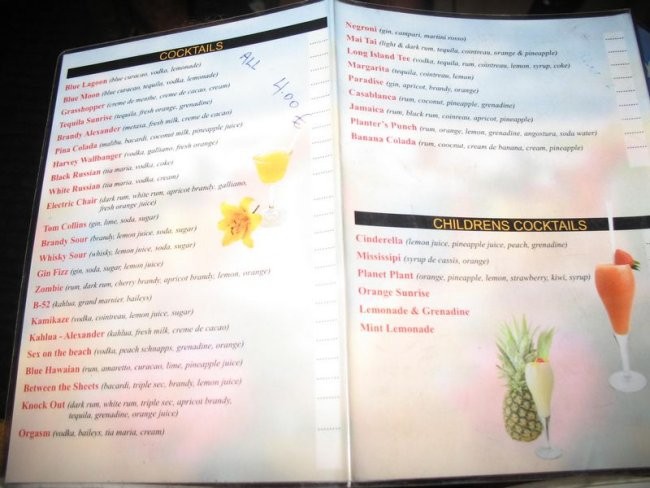 COCKTAILS
ALL 4.00 €
Blue Lagoon (blue curacao, vodka, lemonade)
Blue Moon (blue curacao, tequila, vodka, lemonade)
Grasshopper (creme de menthe, creme de cacao, cream)
Tequila Sunrise (tequila, fresh orange, grenadine)
Brandy Alexander (metaxa, fresh milk, creme de cacao)
Pina Colada (malibu, bacardi, coconut milk, pineapple juice)
Harvey Wallbanger (vodka, galliano, fresh orange)
Black Russian (tia maria, vodka, coke)
White Russian (tia maria, vodka, cream)
Electric Chair (dark rum, white rum, apricot brandy, galliano,
fresh orange juice)
Tom Collins (gin, lime, soda, sugar)
Brandy Sour (brandy, lemon juice, soda, sugar)
Whisky Sour (whisky, lemon juice, soda, sugar)
Gin Fizz (gin, soda, sugar, lemon juice)
Zombie (rum, dark rum, cherry brandy, apricot brandy, lemon, orange)
B-52 (kahlua, grand marnier, baileys)
Kamikaze (vodka, cointreau, lemon juice, sugar)
Kahlua - Alexander (kahlua, fresh milk, creme de cacao)
Sex on the beach (vodka, peach schnapps, grenadine, orange)
Blue Hawaian (rum, amaretto, curacao, lime, pineapple juice)
Between the Sheets (bacardi, triple sec, brandy, lemon juice)
Knock Out (dark rum, white rum, triple sec, apricot brandy,
tequila, grenadine, orange juice)
Orgasm (vodka, baileys, tia maria, cream)
Negroni (gin, campari, martini rosso)
Mai Tai (light & dark rum, tequila, cointreau, orange & pineapple)
Long Island Tee (vodka, tequila, rum, cointreau, lemon, syrup, coke)
Margarita (tequila, cointreau, lemon)
Paradise (gin, apricot, brandy, orange)
Casablanca (rum, coconut, pineapple, grenadine)
Jamaica (rum, black rum, cointreau, apricot, pineapple)
Planter's Punch (rum, orange, lemon, grenadine, angostura, soda water)
Banana Colada (rum, coocnut, cream de banana, cream, pineapple)
CHILDRENS COCKTAILS
Cinderella (lemon juice, pineapple juice, peach, grenadine)
Mississipi (syrup de cassis, orange)
Planet Plant (orange, pineapple, lemon, strawberry, kiwi, syrup)
Orange Sunrise
Lemonade & Grenadine
Mint Lemonade